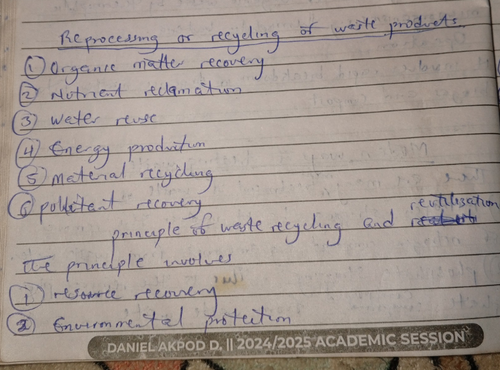 Reprocessing or recycling of waste products.
① Organic matter recovery
② Nutrient reclamation
③ Water reuse
④ Energy production
⑤ Material recycling
⑥ pollutant recovery
principle of waste recycling and reutilization
The principle involves
① resource recovery
② Environmental protection
DANIEL AKPOD D. || 2024/2025 ACADEMIC SESSION